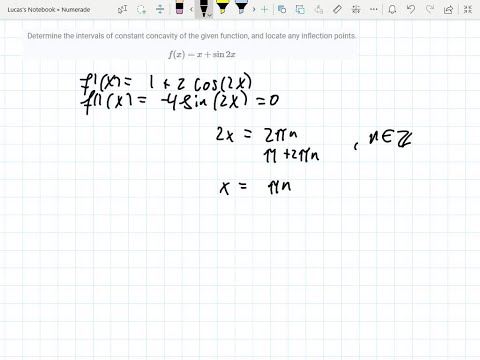 Lucas's Notebook » Numerade
Determine the intervals of constant concavity of the given function, and locate any inflection points.
f(x) = x + sin 2x
f'(x) = 1 + 2 cos(2x)
f''(x) = -4 sin(2x) = 0
2x = 2πn
π + 2πn , n ∈ ℤ
x = πn